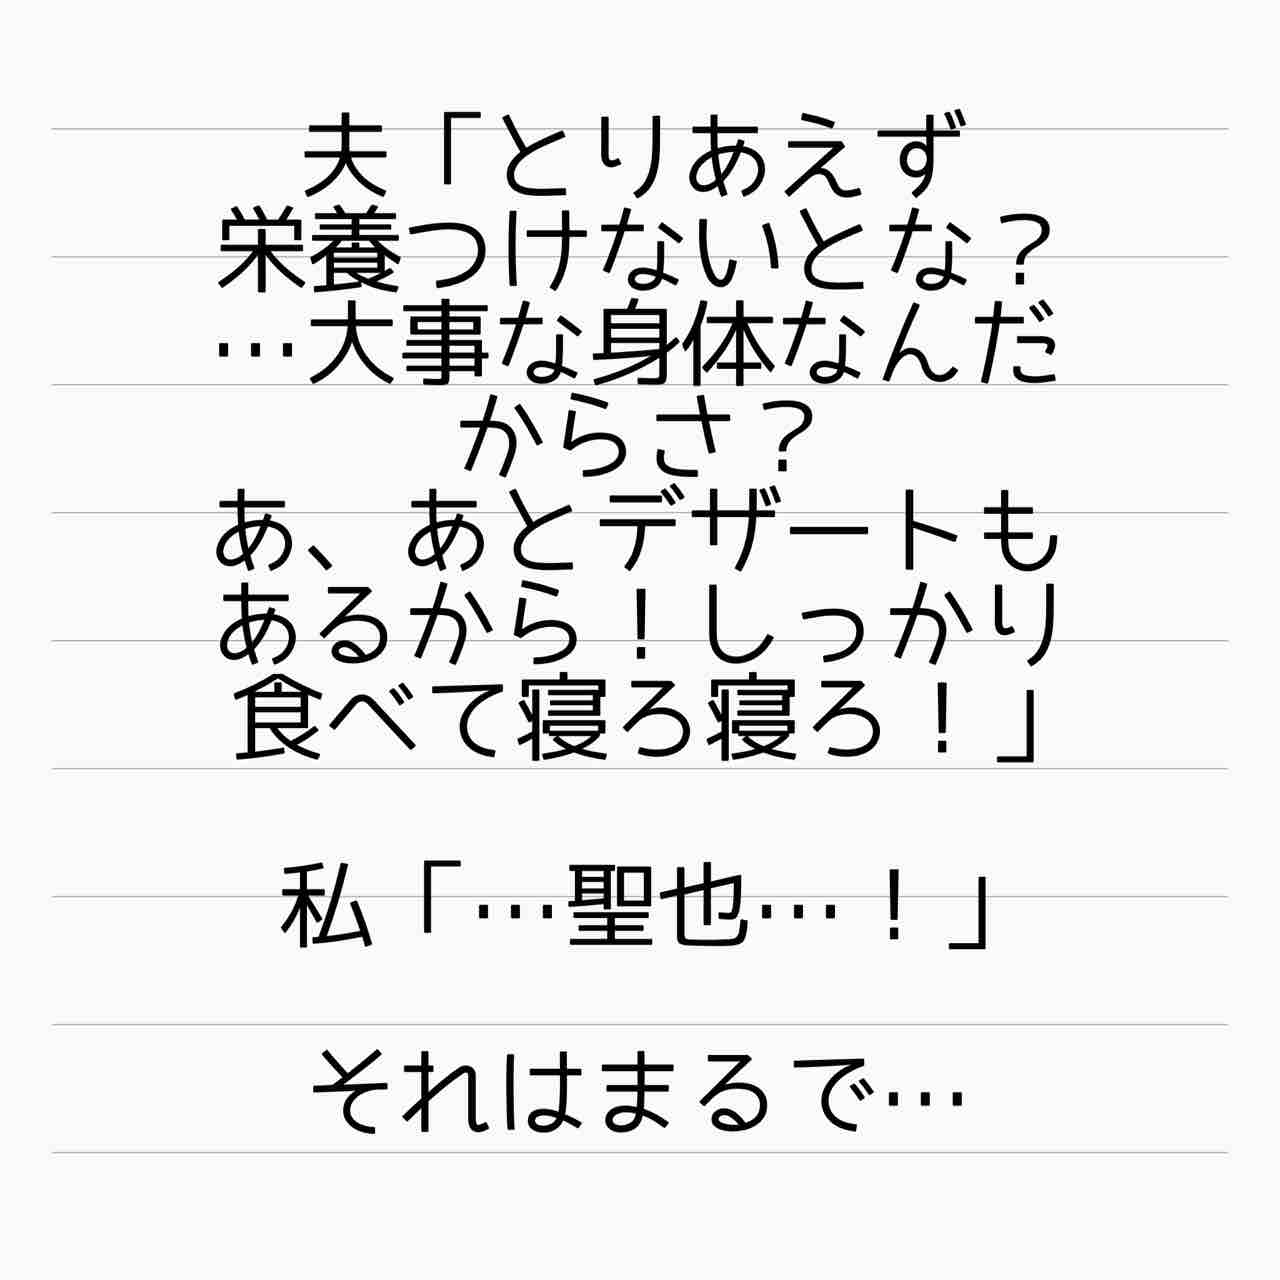 夫「とりあえず
栄養つけないとな？
…大事な身体なんだ
からさ？
あ、あとデザートも
あるから！しっかり
食べて寝ろ寝ろ！」
私「…聖也…！」
それはまるで…